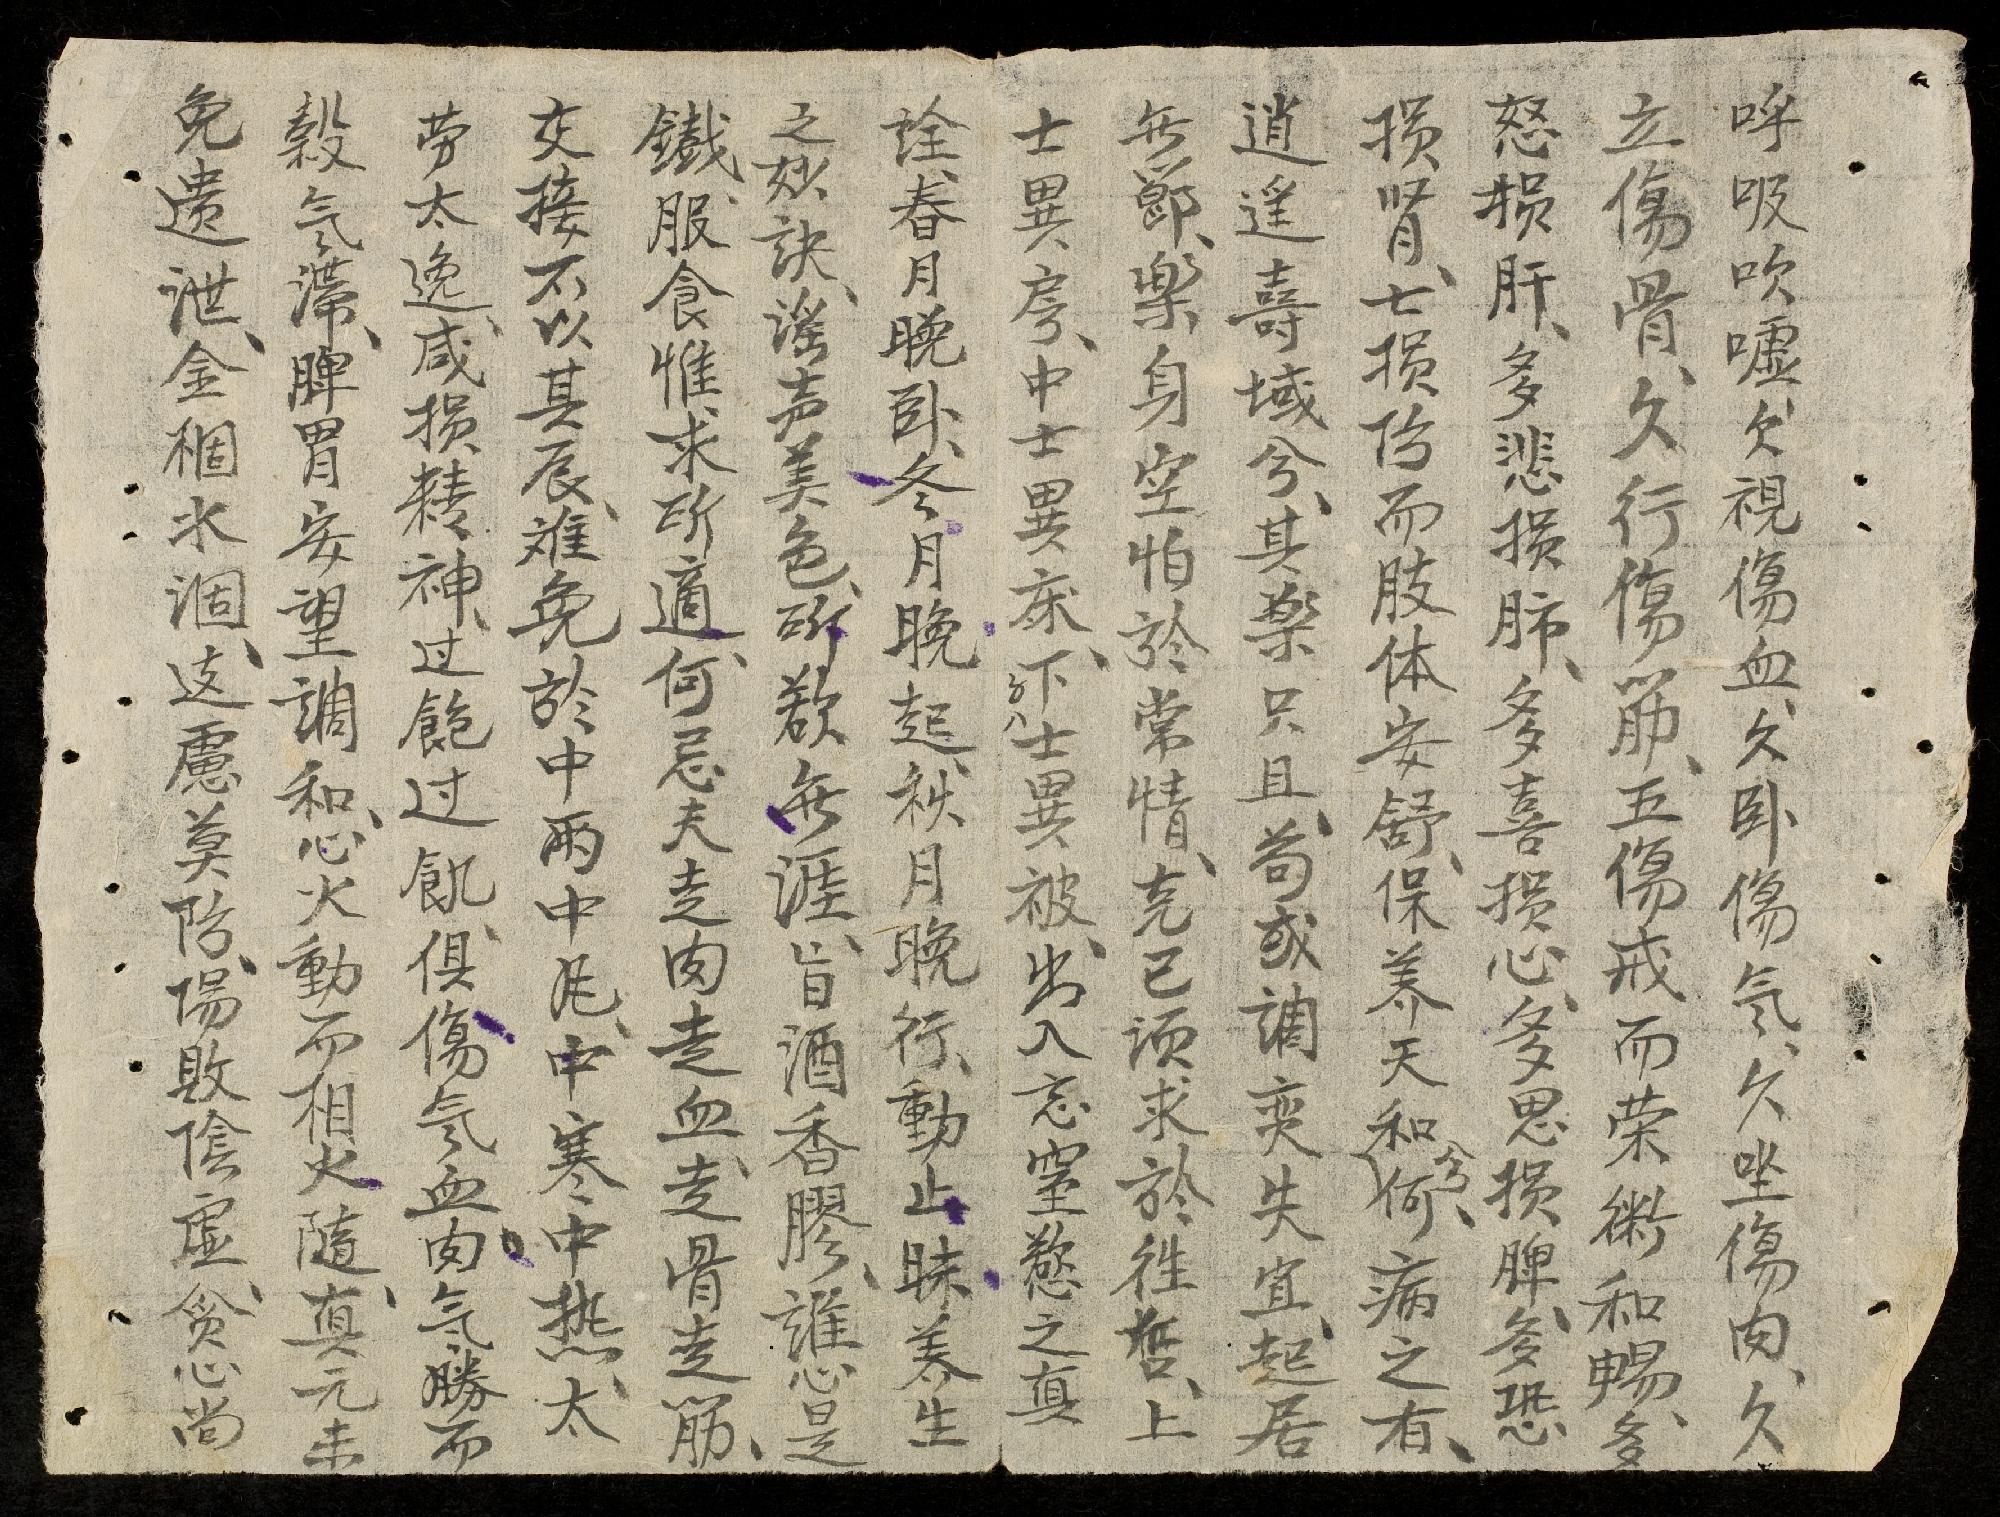 呼吸吹嘘、久視傷血、久卧傷气、久坐傷肉、久
立傷骨、久行傷筋、五傷戒而荣衛和暢、多
怒损肝、多悲损肺、多喜损心、多思损脾、多恐
损肾、七损防而肢体安舒、保养天和兮、何病之有、
逍遥壽域兮、其楽只且、苟或調变失宜、起居
無節、楽身空怕於常情、克己须求於往哲、上
士異房、中士異床、下士異被、出入忘窒慾之真
诠、春月晚卧、冬月晚起、秋月晚行、動止昧养生
之妙訣、谣声美色、所欲無涯、旨酒香膠、誰心是
鐵、服食惟求所適、何忌夫走肉走血、走骨走筋、
交接不以其辰、难免於中雨中风、中寒中热、太
劳太逸、咸损精神、过飽过飢、俱傷气血、肉气勝而
穀气滞、脾胃安望調和、心火動而相火隨、真元未
免遗泄、金稒水涸、这慮莫防、陽敗陰虚、贪心尚